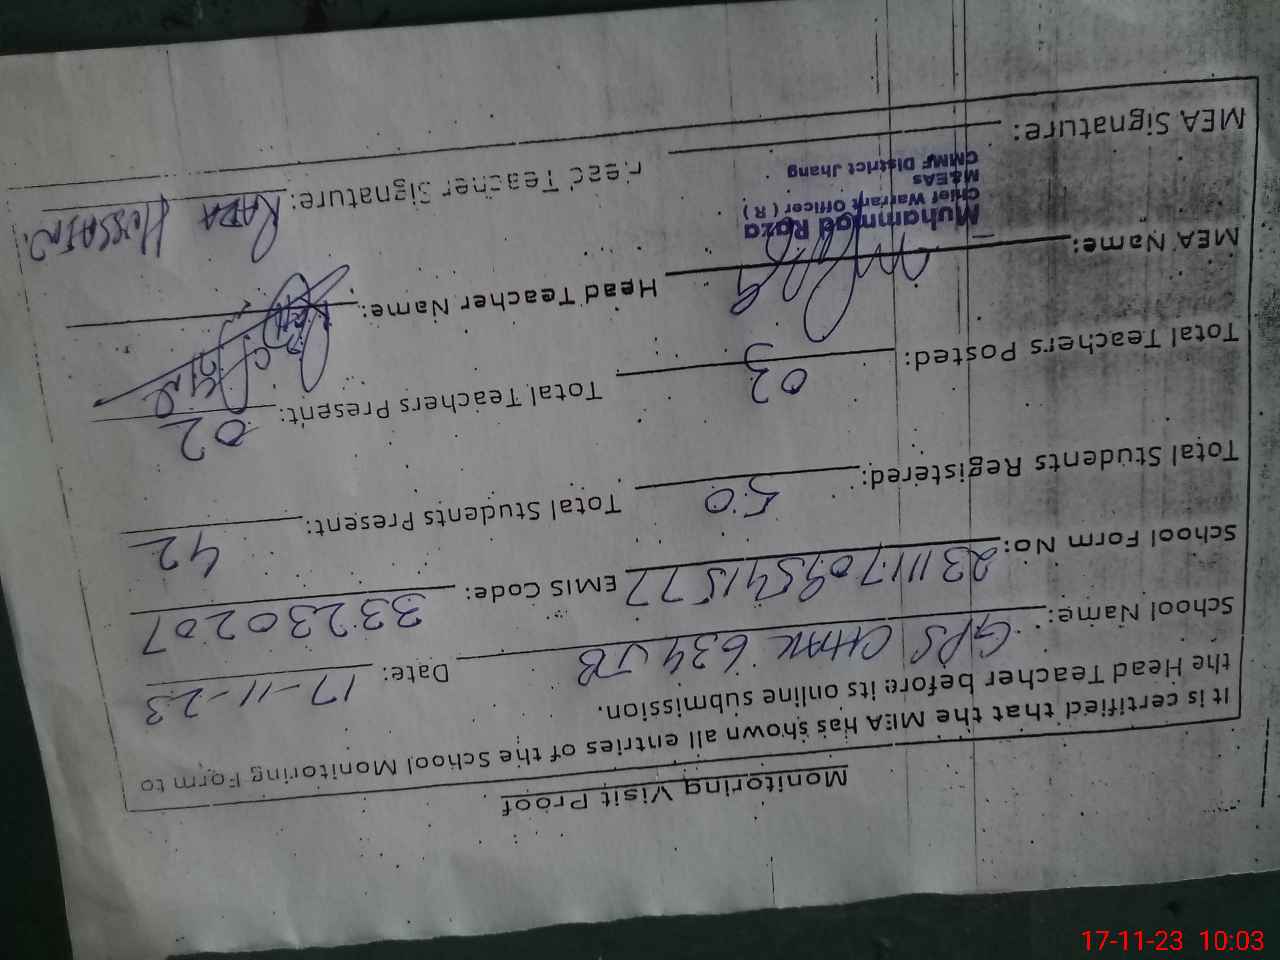 Monitoring Visit Proof
It is certified that the MEA has shown all entries of the School Monitoring Form to
the Head Teacher before its online submission.
School Name: GPS CHAK 634 JB Date: 17-11-23
School Form No: EMIS Code: 33230207
Total Students Registered: 50 Total Students Present: 42
Total Teachers Posted: 03 Total Teachers Present: 02
MEA Name: Head Teacher Name:
Muhammad Raza
Chief Warrant Officer ( R )
M&EAs
CMMF District Jhang
MEA Signature: Head Teacher Signature:
17-11-23 10:03